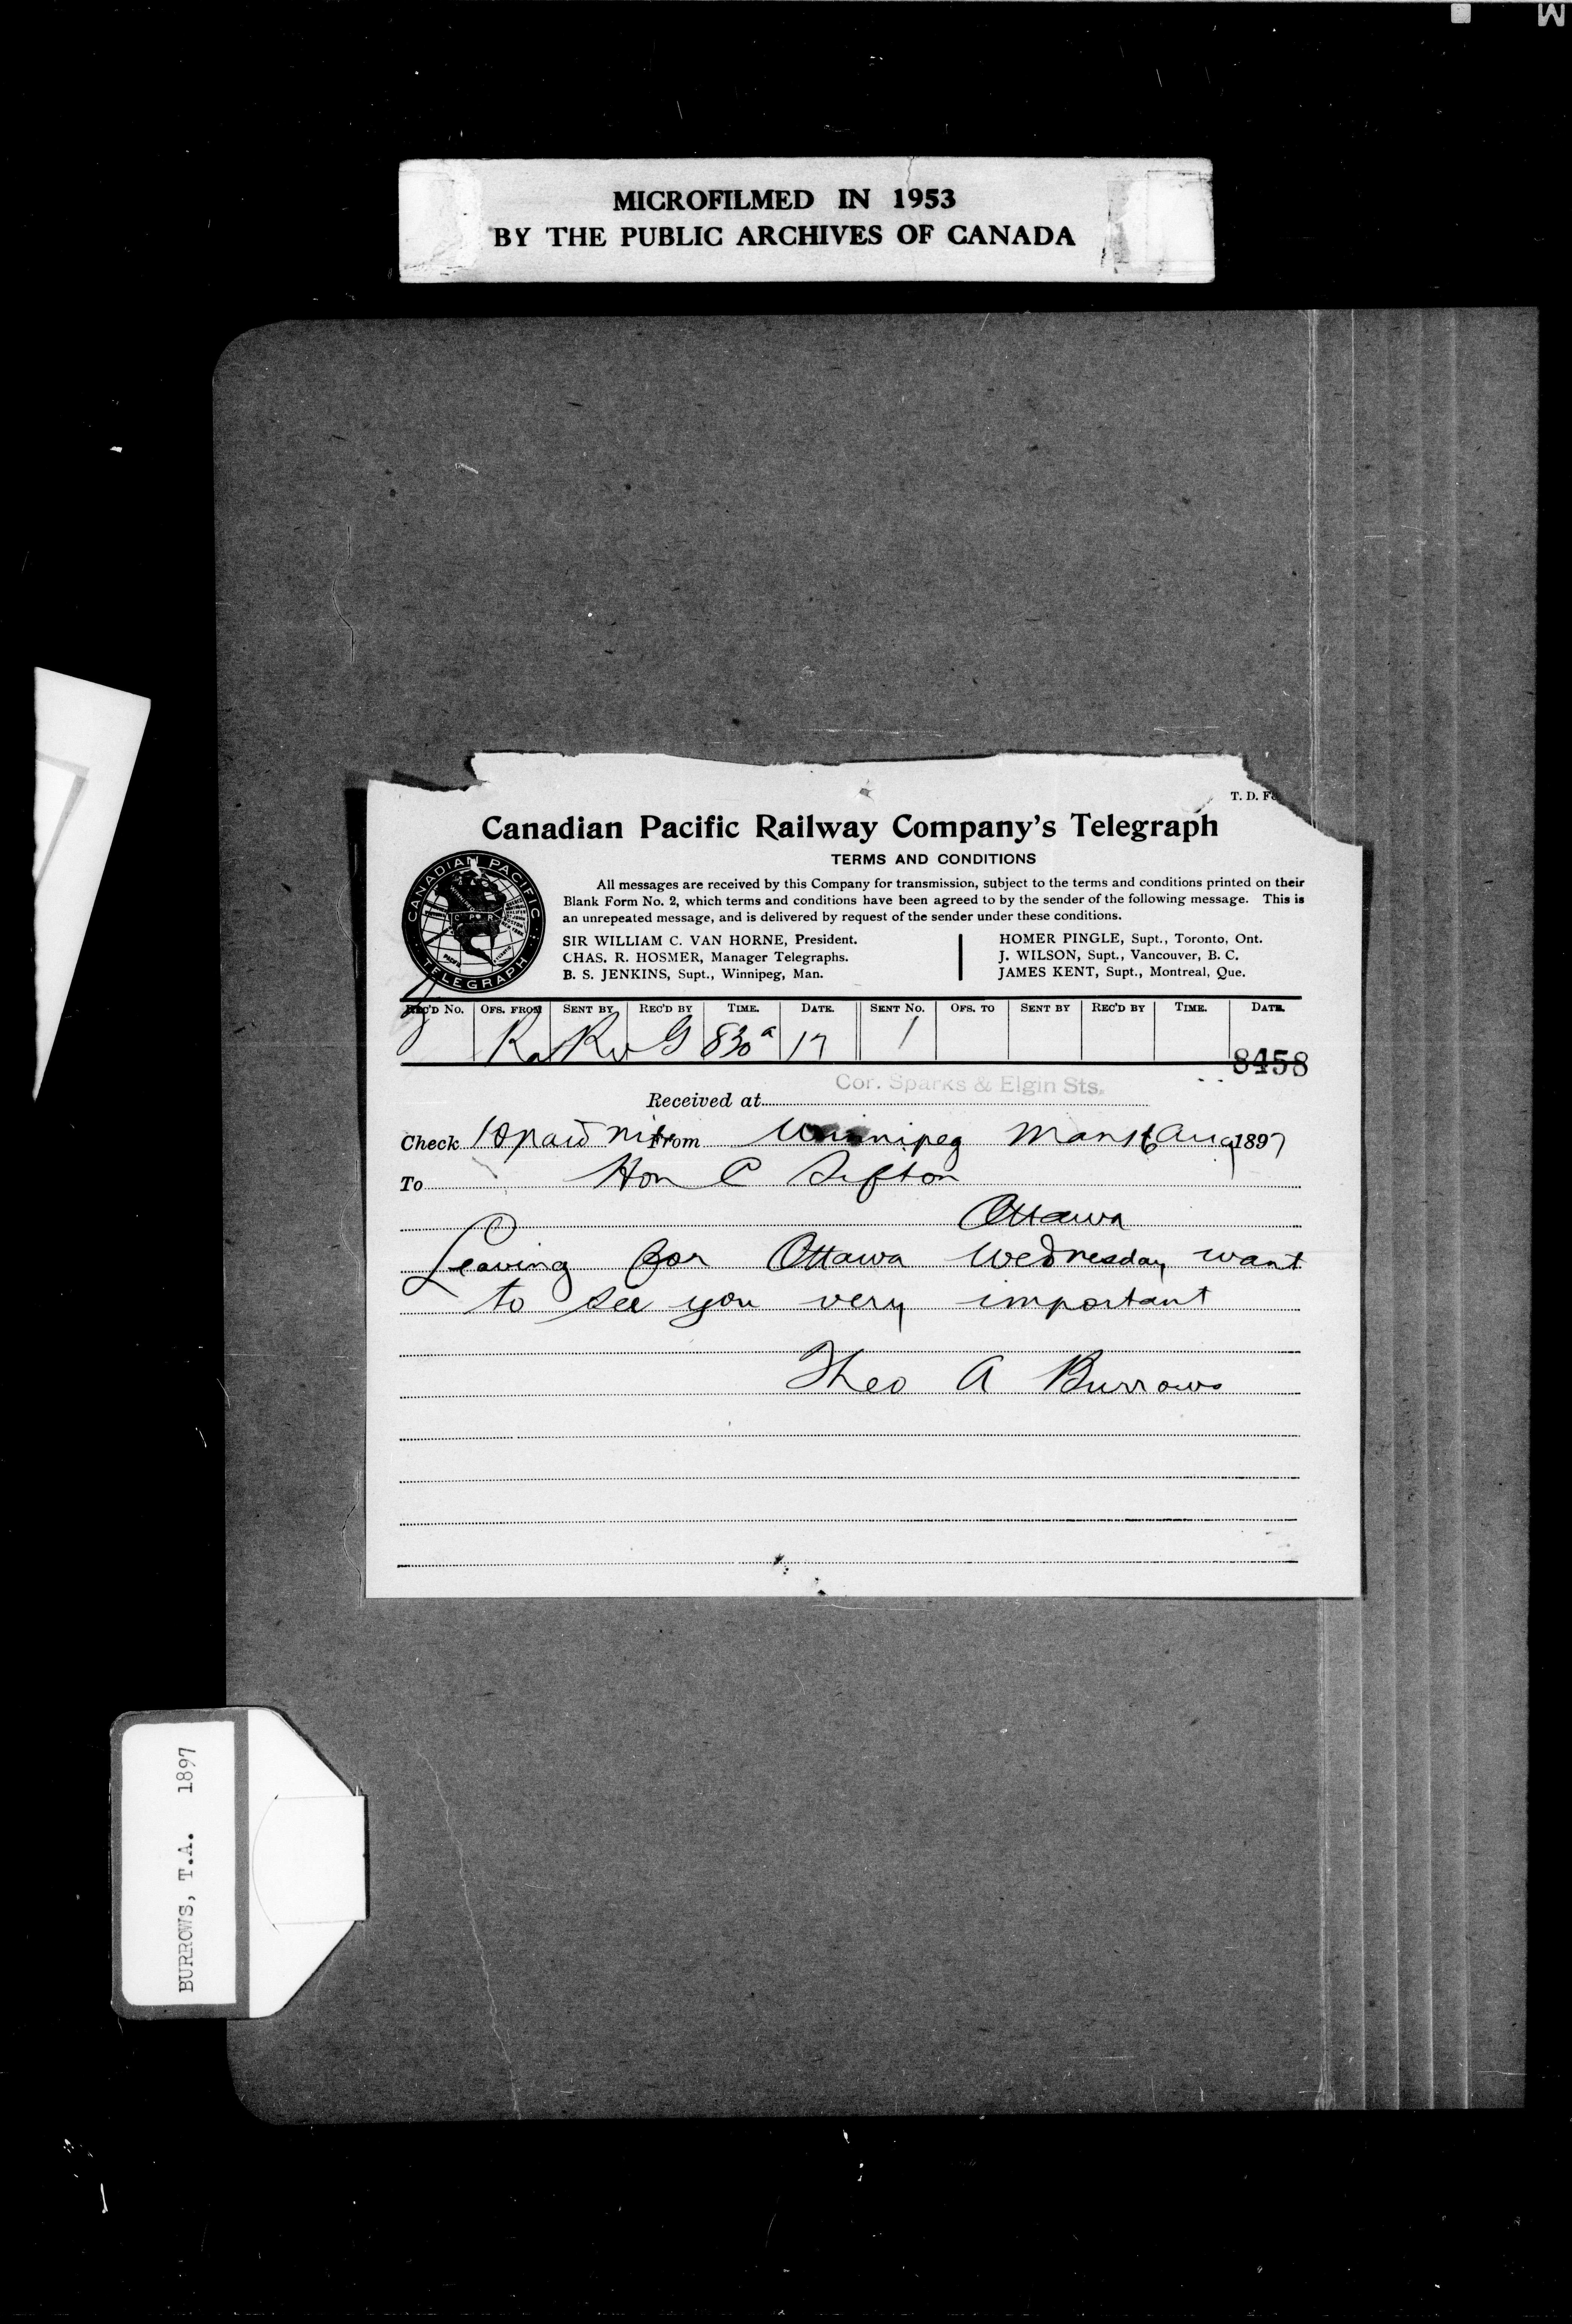 MICROFILMED IN 1953
BY THE PUBLIC ARCHIVES OF CANADA
T. D. Fo
Canadian Pacific Railway Company's Telegraph
TERMS AND CONDITIONS
All messages are received by this Company for transmission, subject to the terms and conditions printed on their
Blank Form No. 2, which terms and conditions have been agreed to by the sender of the following message. This is
an unrepeated message, and is delivered by request of the sender under these conditions.
SIR WILLIAM C. VAN HORNE, President.
CHAS. R. HOSMER, Manager Telegraphs.
B. S. JENKINS, Supt., Winnipeg, Man.
HOMER PINGLE, Supt., Toronto, Ont.
J. WILSON, Supt., Vancouver, B. C.
JAMES KENT, Supt., Montreal, Que.
CANADIAN PACIFIC
C P R
TELEGRAPH
REC'D No. OFS. FROM SENT BY REC'D BY TIME. DATE. SENT No. OFS. TO SENT BY REC'D BY TIME. DATE.
G 830a 17
8458
Cor. Sparks & Elgin Sts.
Received at
Check 10 paid From Winnipeg Man 16 Aug 1897
To Hon C Sifton
Ottawa
Leaving for Ottawa Wednesday want
to see you very important
Theo A Burrows
BURROWS, T.A. 1897